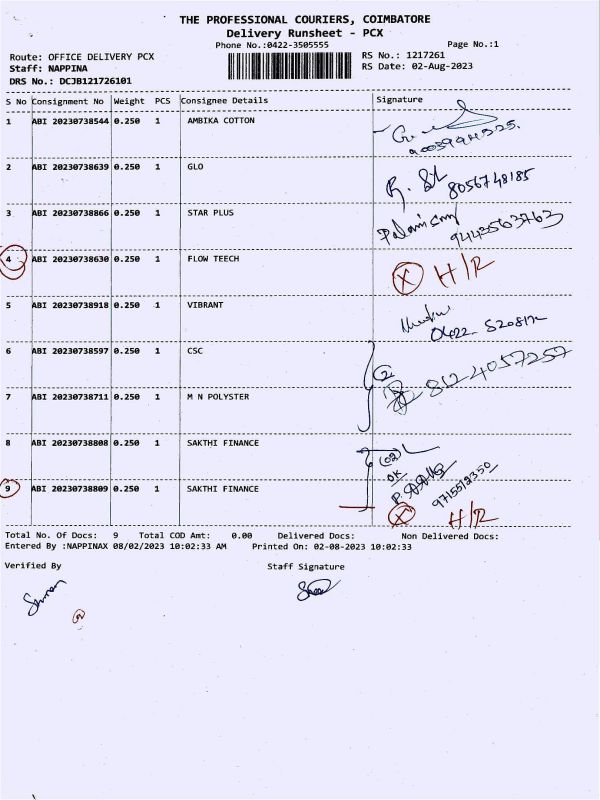 THE PROFESSIONAL COURIERS, COIMBATORE
Delivery Runsheet - PCX
Phone No.:0422-3505555
Page No.:1
Route: OFFICE DELIVERY PCX
RS No.: 1217261
Staff: NAPPINA
RS Date: 02-Aug-2023
DRS No.: DCJB121726101
S No Consignment No Weight PCS Consignee Details Signature
1 ABI 20230738544 0.250 1 AMBIKA COTTON
2 ABI 20230738639 0.250 1 GLO
8056748185
3 ABI 20230738866 0.250 1 STAR PLUS
9442563763
4 ABI 20230738630 0.250 1 FLOW TEECH X H/R
5 ABI 20230738918 0.250 1 VIBRANT
0422
6 ABI 20230738597 0.250 1 CSC
2
8124057257
7 ABI 20230738711 0.250 1 M N POLYSTER
8 ABI 20230738808 0.250 1 SAKTHI FINANCE
(02)
OK
9 ABI 20230738809 0.250 1 SAKTHI FINANCE
9715512350
X H/R
Total No. Of Docs: 9 Total COD Amt: 0.00 Delivered Docs: Non Delivered Docs:
Entered By :NAPPINAX 08/02/2023 10:02:33 AM Printed On: 02-08-2023 10:02:33
Verified By Staff Signature